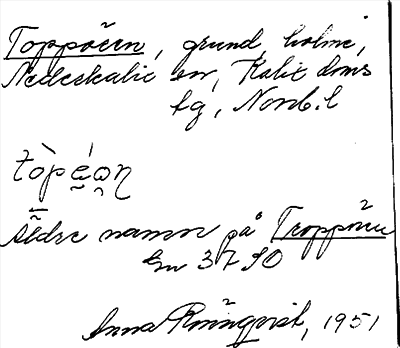 Toppören, grund, holme,
Nederkalix sn, Kalix doms
tg, Norrb. l
Äldre namn på Tropporen
En 3790
Anna Rönnqvist, 1951